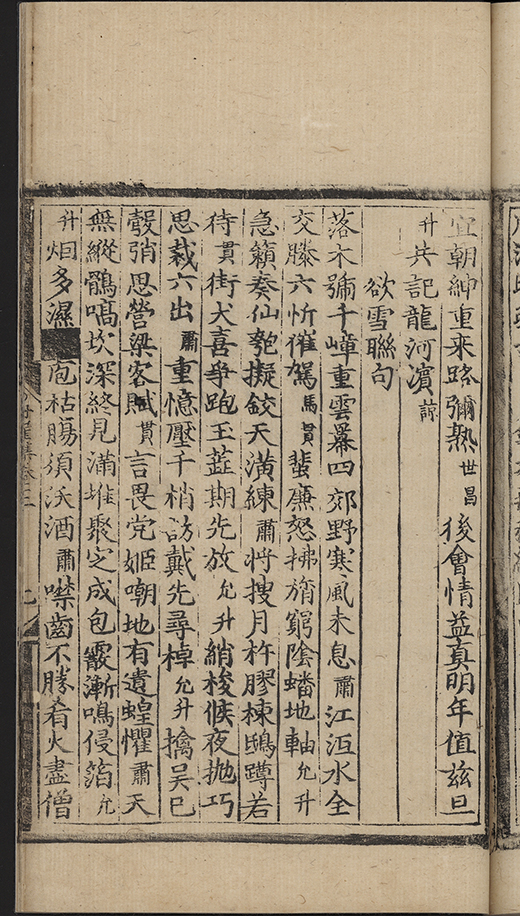 宜朝紳重來路彌熟世昌後會情益真明年值茲旦
升共記龍河濱諒
欲雪聯句
落木號千嶂重雲羃四郊野寒風未息肅江沍水全
交滕六忻催駕馬貫蜚廉怒拂旓窮陰蟠地軸允升
急籟奏仙匏擬鉸天潢練肅將搜月杵膠棟鴟蹲若
待貫街犬喜爭跑玉䪥期先放允升綃梭候夜拋巧
思裁六出肅重憶壓千梢訪戴先尋棹允升擒吳已
彀弰思營梁客賦貫言畏党姬嘲地有遺蝗懼肅天
無縱鶻嗃坎深終見滿堆聚定成包霰漸鳴侵箔允
升烟多濕庖枯腸須沃酒肅噤齒不勝肴火盡僧